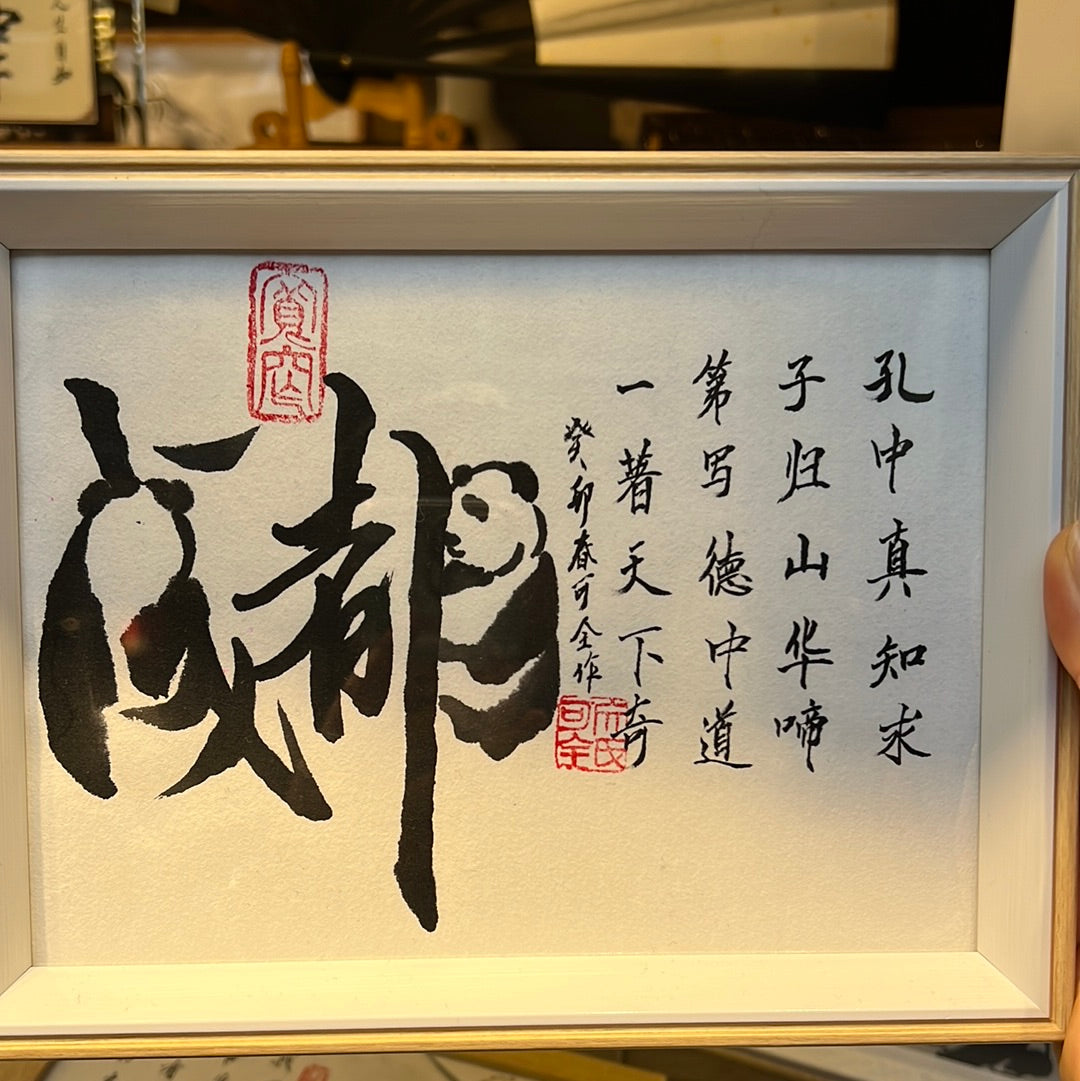 孔中真知求
子归山华啼
第写德中道
一著天下奇
癸卯春可全作
成都